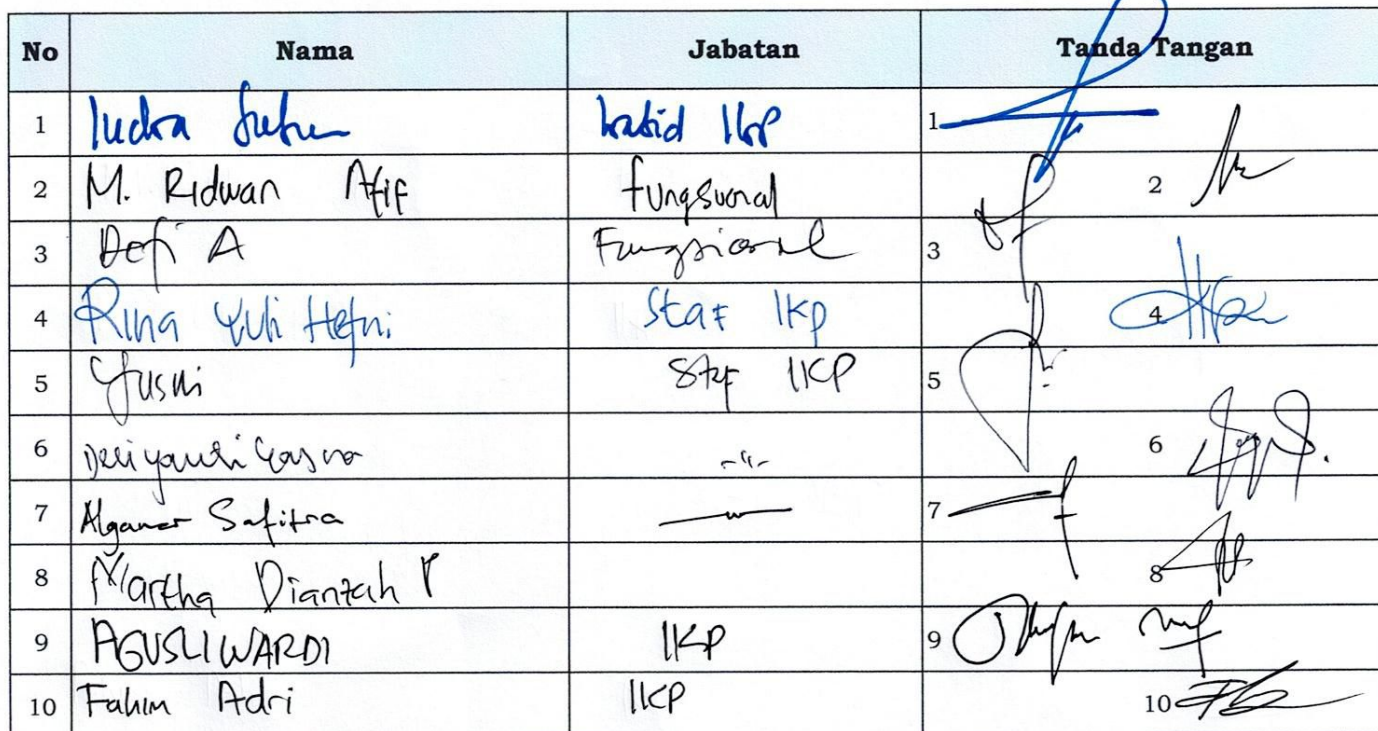 No Nama Jabatan Tanda Tangan
1 Indra kabid IKP 1
2 M. Ridwan Afif fungsional 2
3 Defi A Fungsional 3
4 Rina Yuli Hefni Staf IKP 4
5 Yusni Staf IKP 5
6 -"- 6
7 Safitra 7
8 Martha Dianzah P 8
9 AGUSLIWARDI IKP 9
10 Fahim Adri IKP 10